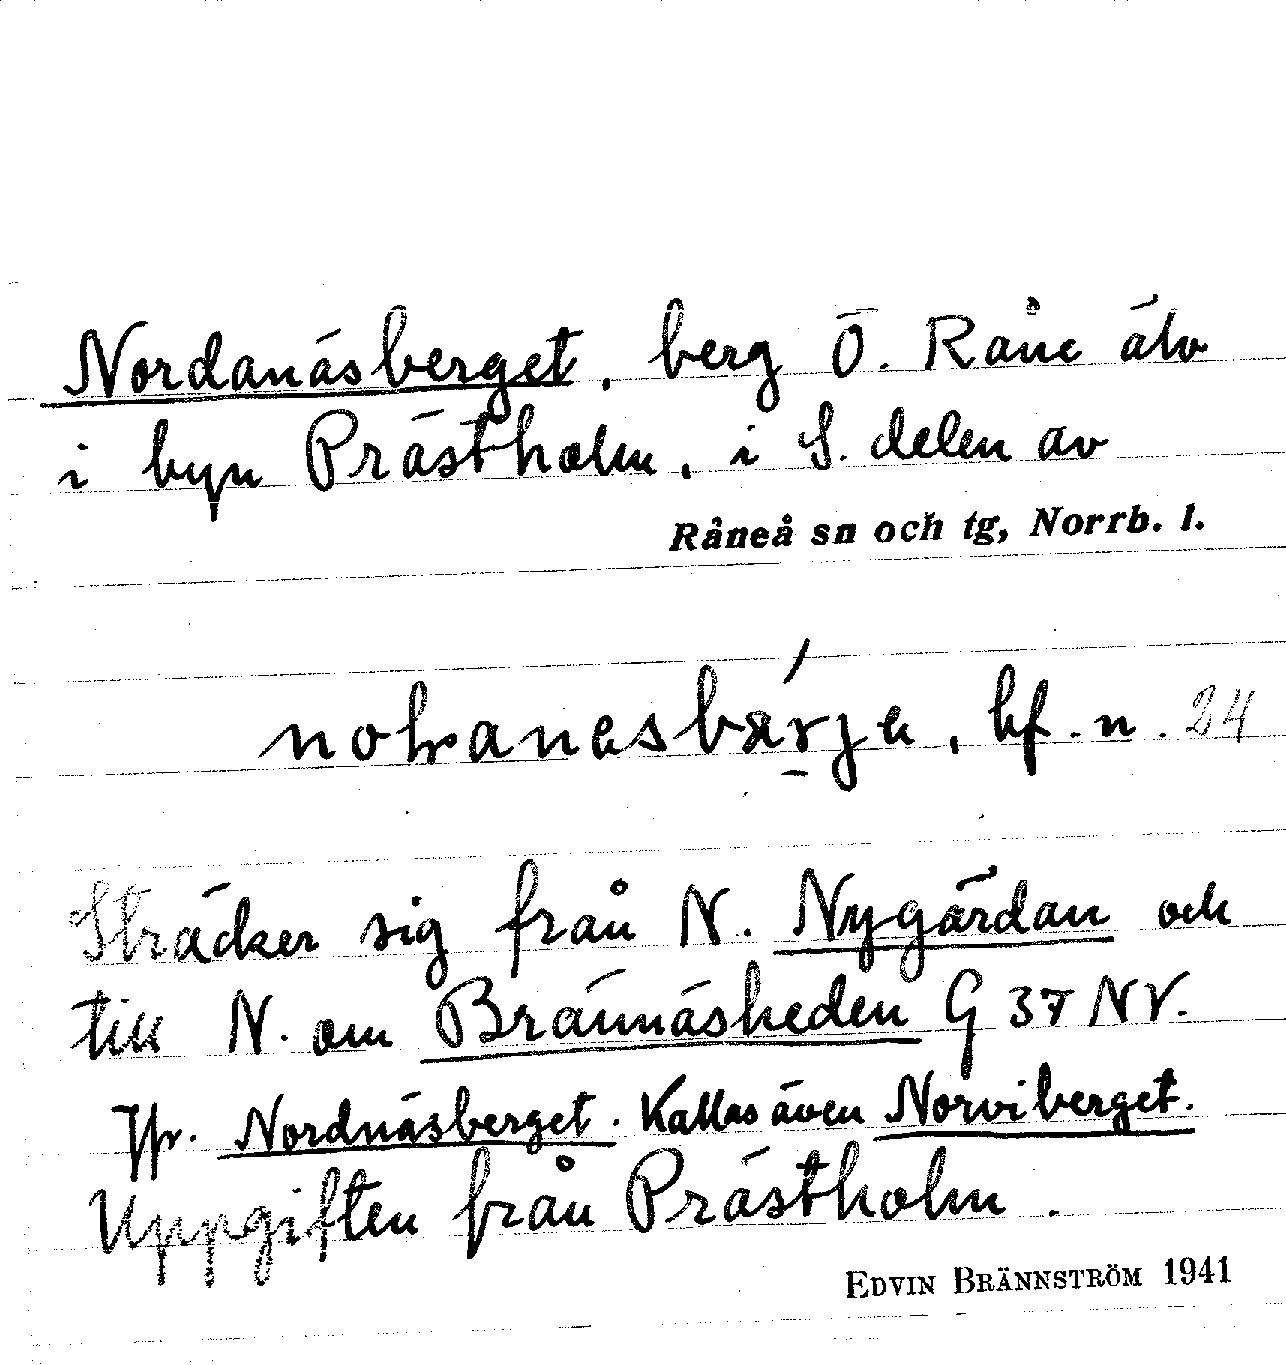 Nordanäsberget, berg Ö. Råne älv
i byn Prästholm, i S. delen av
Råneå sn och tg, Norrb. l.
bf. n. 24
Sträcker sig från N. Nygärdan och
till N. om Brännäsheden G 37 NV.
Jfr. Nordnäsberget. Kallas även Norviberget.
Uppgiften från Prästholm.
EDVIN BRÄNNSTRÖM 1941